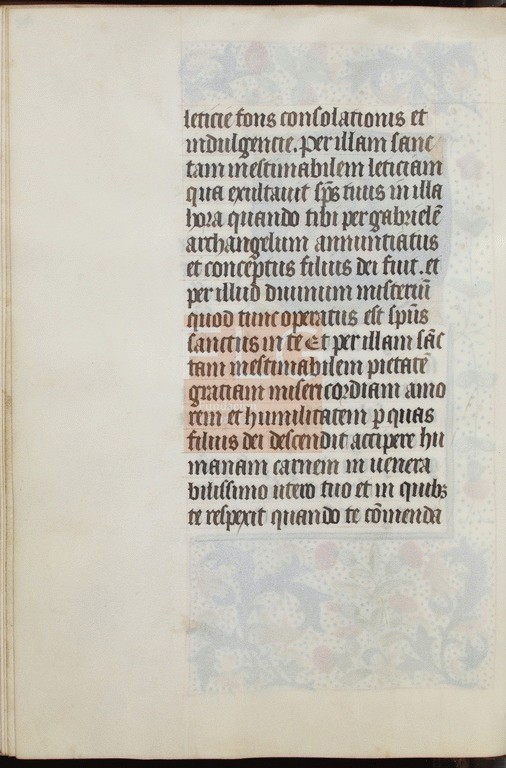 leticie fons consolationis et
indulgentie. Per illam sanc
tam inestimabilem leticiam
qua exultauit sp̃s tuus in illa
hora quando tibi per gabrielẽ
archangelum annuntiatus
et conceptus filius dei fuit. et
per illud diuinum misteriũ
quod tunc operatus est spũs
sanctus in te Et per illam sãc
tam inestimabilem pietatẽ
gratiam misericordiam amo
rem et humilitatem ꝑ quas
filius dei descendit accipere hu
manam carnem in uenera
bilissimo utero tuo et in quibꝫ
te respexit quando te cõmenda